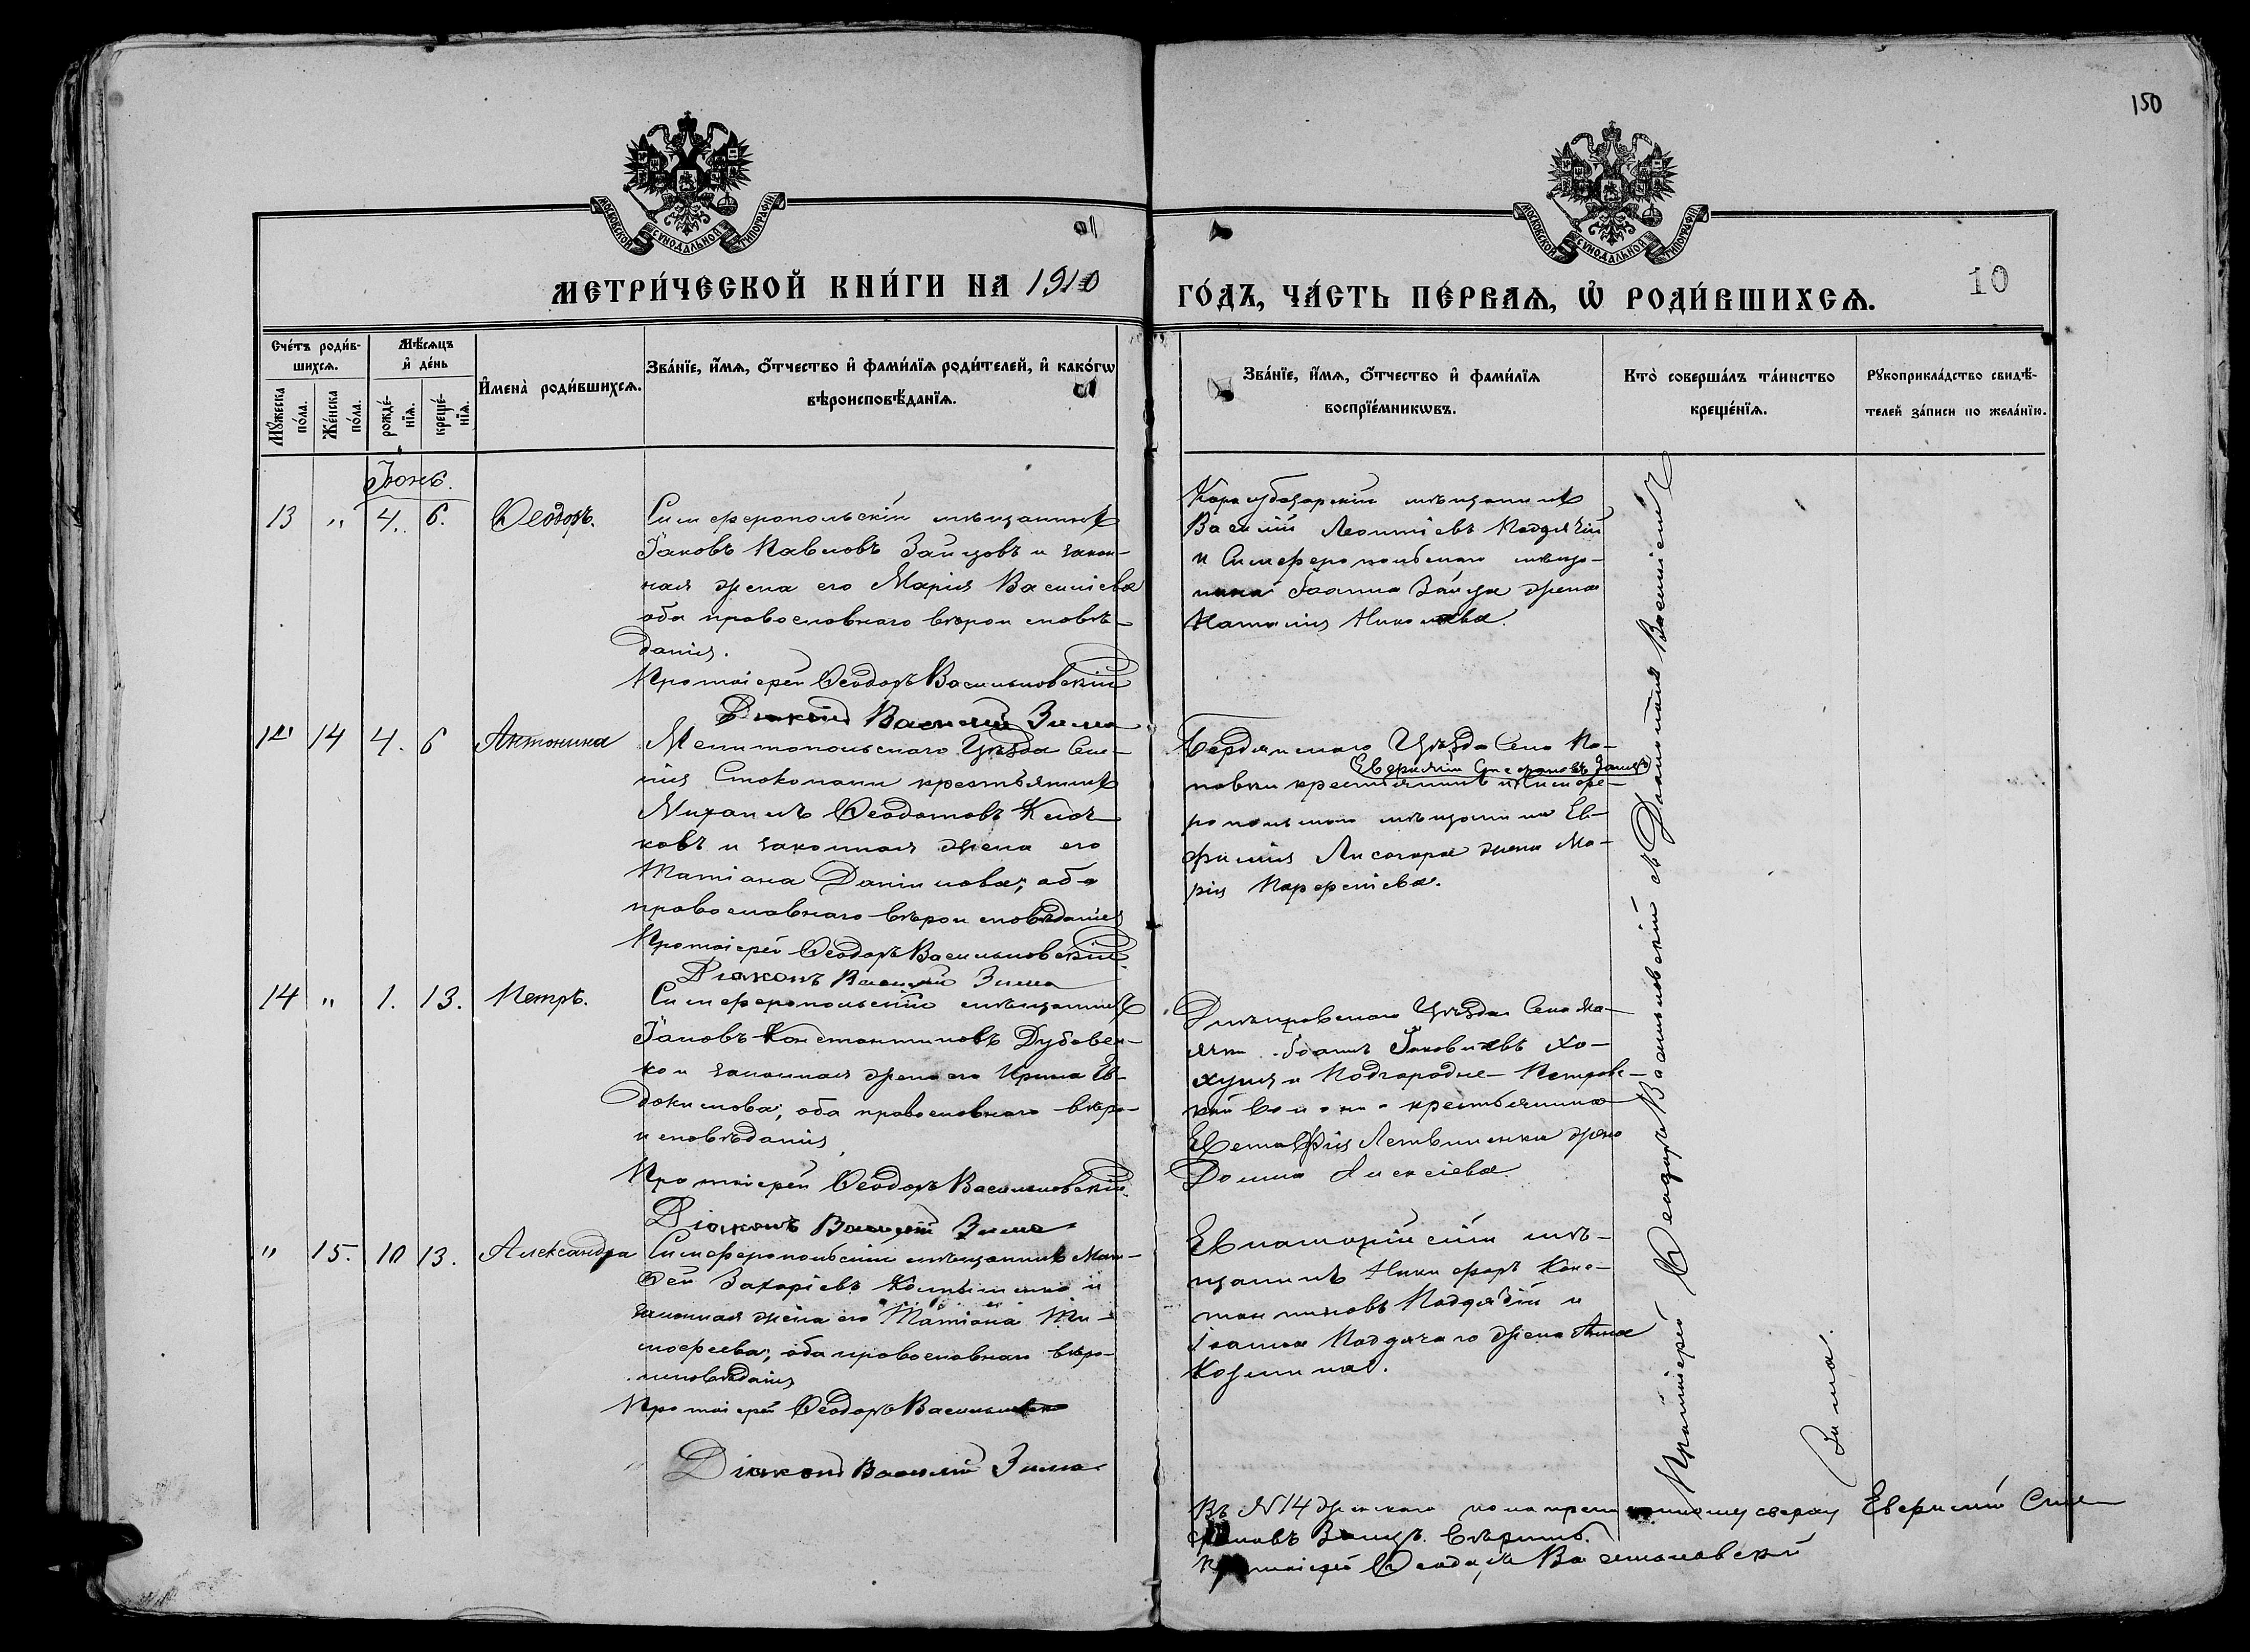 150
МОСКОВСКОЙ СѴНОДАЛЬНОЙ ТИПОГРАФІИ
МОСКОВСКОЙ СѴНОДАЛЬНОЙ ТИПОГРАФІИ
МЕТРИ́ЧЕСКОЙ КНИ́ГИ НА 1910
ГО́ДЪ, ЧА́СТЬ ПЕ́РВАѦ, Ѡ҆ РОДИ́ВШИХСѦ.
10
Сче́тъ роди́в-
шихсѧ.
Мꙋ́жеска
по́ла.
Же́нска
по́ла.
Мѣ́сѧцъ
и҆ де́нь
рожде́-
нїѧ.
креще́-
нїѧ.
И҆мена̀ роди́вшихсѧ.
Зва́нїе, и҆́мѧ, ѻ҆́тчество и҆ фами́лїѧ роди́телей, и҆ како́гѡ
вѣроисповѣ́данїѧ.
Зва́нїе, и҆́мѧ, ѻ҆́тчество и҆ фами́лїѧ
воспрїе́мникѡвъ.
Кто̀ соверша́лъ та́инство
креще́нїѧ.
Рꙋкоприкла́дство свидѣ́-
телей за́писи по жела́нїю.
Іюнь.
13 " 4. 6. Ѳеодоръ.
Симферопольскій мѣщанинъ
Іаковъ Павловъ Зайцовъ и закон-
ная жена его Марія Василіева
оба православнаго вѣроисповѣ-
данія.
Протоіерей Ѳеодоръ Васильковскій
Діаконъ Василій Зима
Карасубазарскій мѣщанинъ
Василій Леонтіевъ Подгячій
и Симферопольскаго мѣща-
нина Іоанна Зайца жена
Наталія Николаева.
14 4. 6 Антонина
Мелитопольскаго Уѣзда Сем-
ія крестьянинъ
Михаилъ Ѳеодотовъ Клоч-
ковъ и законная жена его
Татіана Даніилова; оба
православнаго вѣроисповѣданія
Протоіерей Ѳеодоръ Васильковскій
Діаконъ Василій Зима
Бердянскаго Уѣзда Села По-
Еверилій Стефановъ Заицъ
повки крестьянинъ и Симфе-
ропольскаго мѣщанина Ев-
фимія Лисогора жена Ма-
рія Парфеніева.
14 " 1. 13. Петръ.
Симферопольскій мѣщанинъ
Іаковъ Константиновъ Дубовен-
ко и законная жена его Ирина Ев-
докимова; оба православнаго вѣро-
исповѣданія
Протоіерей Ѳеодоръ Васильковскій.
Діаконъ Василій Зима
Днѣпровскаго Уѣзда Села Ма-
ячки Іоаннъ Іаковлевъ Хо-
хуля и Подгородне-Петровс-
кой крестьянина
Евстаѳія жена
Домна Алексіева.
" 15. 10 13. Александра
Симферопольскій мѣщанинъ Мат-
ѳей Захаріевъ и
законная жена его Татіана Ти-
мофеева; оба православнаго вѣро-
исповѣданія
Протоіерей Ѳеодоръ Васильковскій
Діаконъ Василій Зима
Евпаторійскій мѣ-
щанинъ Никифоръ Конс-
тантиновъ Подгячій и
Іоанна Подгячаго жена Анна
Козминна.
Протоіерей Ѳеодоръ Васильковскій съ Діакономъ Василіемъ
Зима.
Въ №14 женскаго пола сверху Еверилій Сте-
фановъ Заицъ. Вѣрить.
Протоіерей Ѳеодоръ Васильковскій